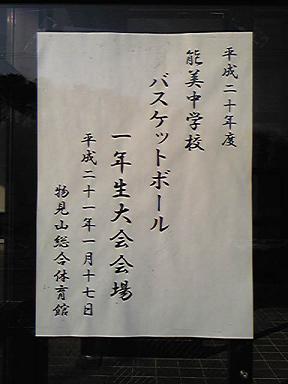 平成二十年度
能美中学校
バスケットボール
一年生大会会場
平成二十一年一月十七日
物見山総合体育館